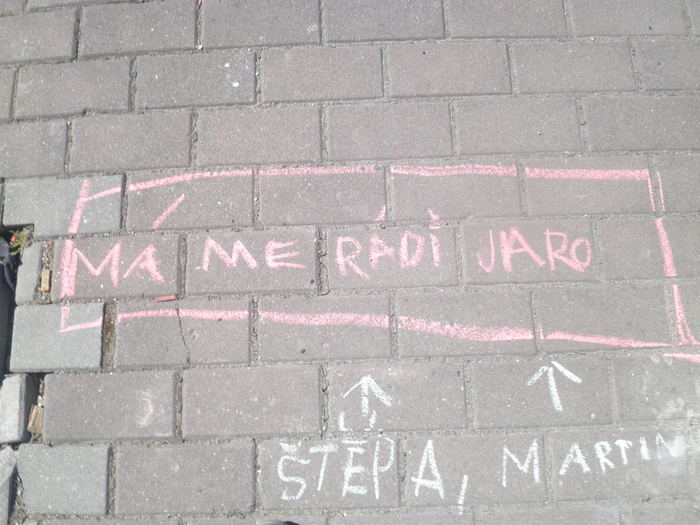 MÁ ME RÁDI JARO
ŠTĚPA, MARTIN